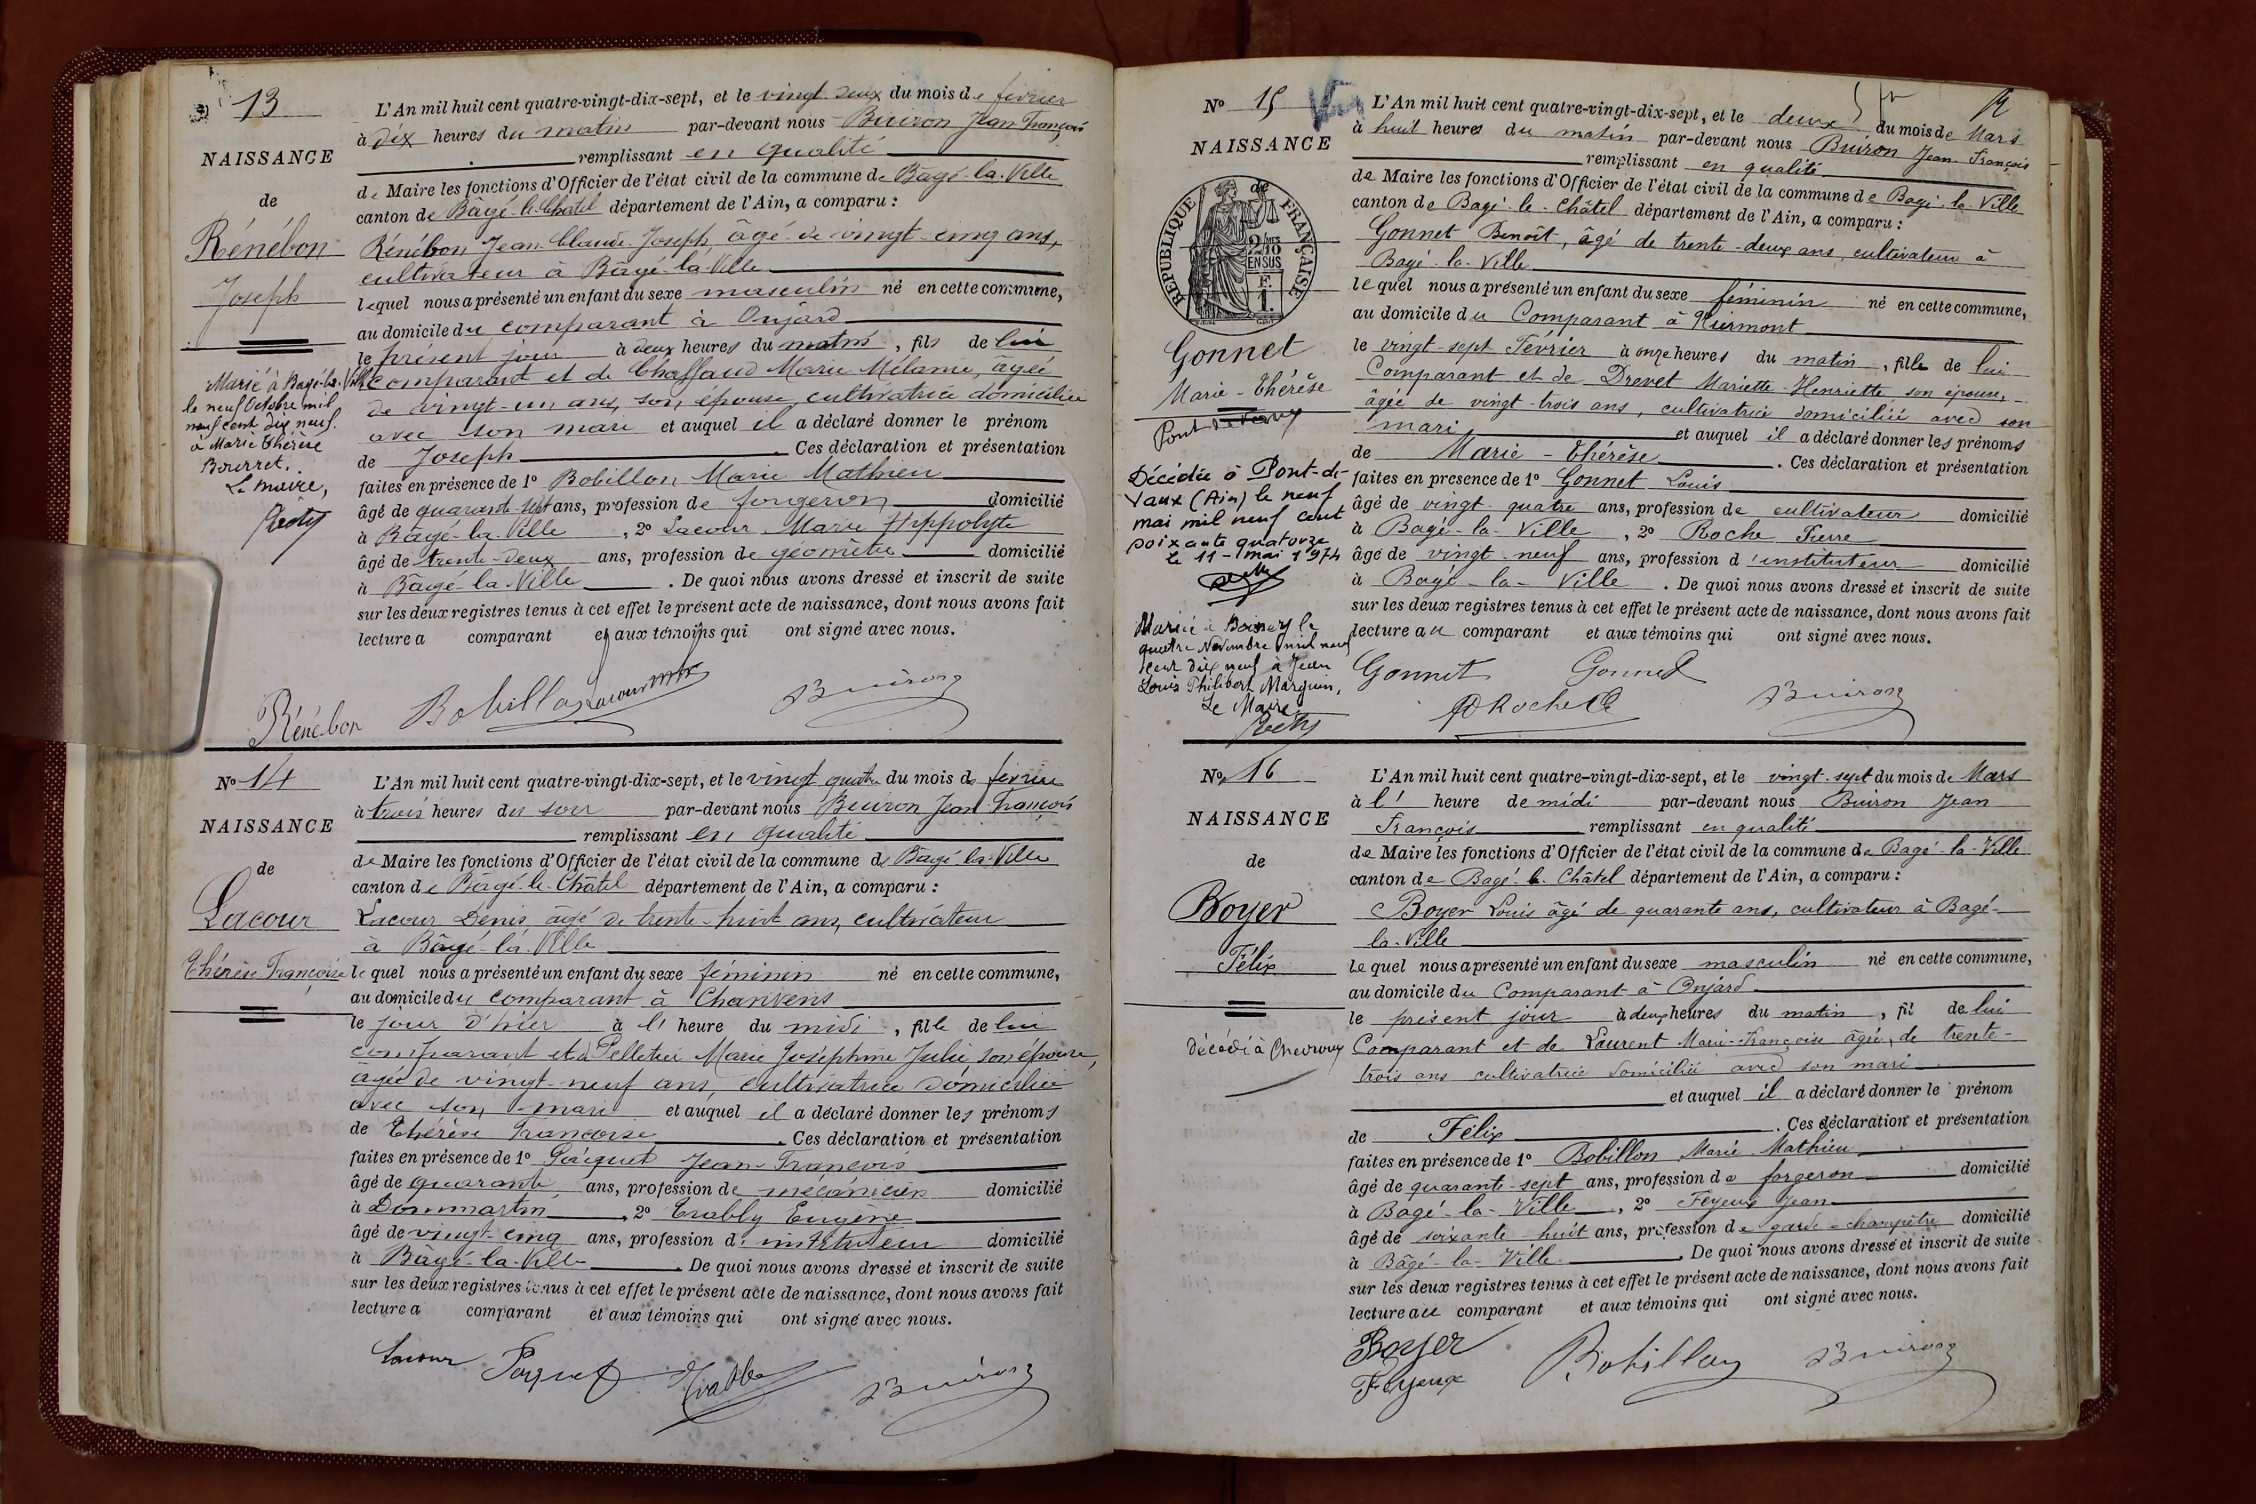 13
NAISSANCE
de
Rénébon
Joseph
Marié à Bagé-la-Ville
le neuf Octobre mil
neuf cent dix neuf.
à Marie Thérèse
Bourret.
Le maire,
L'An mil huit cent quatre-vingt-dix-sept, et le vingt deux du mois de fevrier
à dix heures du matin par-devant nous Buiron Jean François
remplissant en qualité
de Maire les fonctions d'Officier de l'état civil de la commune de Bâgé-la-Ville
canton de Bâgé-le-Châtel département de l'Ain, a comparu :
Rénébon Jean-Claude Joseph, âgé de vingt-cinq ans,
cultivateur à Bâgé-la-Ville
lequel nous a présenté un enfant du sexe masculin né en cette commune,
au domicile du comparant à Onjard
le présent jour à deux heures du matin, fils de lui
comparant et de Chaffaud Marie Mélanie, âgée
de vingt-un ans, son épouse, cultivatrice domiciliée
avec son mari et auquel il a déclaré donner le prénom
de Joseph. Ces déclaration et présentation
faites en présence de 1º Bobillon Marie Mathieu
âgé de quarante-sept ans, profession de forgeron domicilié
à Bâgé-la-Ville, 2º Lacour Marie Hippolyte
âgé de trente-deux ans, profession de géomètre domicilié
à Bâgé-la-Ville. De quoi nous avons dressé et inscrit de suite
sur les deux registres tenus à cet effet le présent acte de naissance, dont nous avons fait
lecture a comparant et aux témoins qui ont signé avec nous.
Rénébon Bobillon Lacour Buiron
Nº 14
NAISSANCE
de
Lacour
Thérèse Françoise
L'An mil huit cent quatre-vingt-dix-sept, et le vingt quatre du mois de fevrier
à trois heures du soir par-devant nous Buiron Jean François
remplissant en qualité
de Maire les fonctions d'Officier de l'état civil de la commune de Bâgé-la-Ville
canton de Bâgé-le-Châtel département de l'Ain, a comparu :
Lacour Denis, âgé de trente-huit ans, cultivateur
à Bâgé-la-Ville
lequel nous a présenté un enfant du sexe féminin né en cette commune,
au domicile du comparant à Chanvens
le jour d'hier à l' heure du midi, fille de lui
comparant et de Pelletier Marie Joséphine Julie, son épouse,
âgée de vingt-neuf ans, cultivatrice domiciliée
avec son mari et auquel il a déclaré donner les prénoms
de Thérèse Françoise. Ces déclaration et présentation
faites en présence de 1º Pacquet Jean-François
âgé de quarante ans, profession de mécanicien domicilié
à Dommartin, 2º Crably Eugène
âgé de vingt-cinq ans, profession d'instituteur domicilié
à Bâgé-la-Ville. De quoi nous avons dressé et inscrit de suite
sur les deux registres tenus à cet effet le présent acte de naissance, dont nous avons fait
lecture a comparant et aux témoins qui ont signé avec nous.
Lacour Buiron
Nº 15
NAISSANCE
de
REPUBLIQUE FRANÇAISE
2/10 EN SUS
1 F.
Gonnet
Marie-Thérèse
Pont de Vaux
Décédée à Pont-de-
Vaux (Ain) le neuf
mai mil neuf cent
soixante quatorze
le 11 - mai 1974
Mariée à le
quatre Novembre mil neuf
cent dix neuf à Jean
Louis Philibert Marguin,
Le Maire
L'An mil huit cent quatre-vingt-dix-sept, et le deux du mois de Mars
à huit heures du matin par-devant nous Buiron Jean-François
remplissant en qualité
de Maire les fonctions d'Officier de l'état civil de la commune de Bagé-la-Ville
canton de Bagé-le-Châtel département de l'Ain, a comparu :
Gonnet Benoît, âgé de trente-deux ans, cultivateur à
Bagé-la-Ville
lequel nous a présenté un enfant du sexe féminin né en cette commune,
au domicile du Comparant à
le vingt-sept Février à onze heures du matin, fille de lui
Comparant et de Drevet Mariette-Henriette, son épouse,
âgée de vingt-trois ans, cultivatrice domiciliée avec son
mari et auquel il a déclaré donner les prénoms
de Marie-Thérèse. Ces déclaration et présentation
faites en présence de 1º Gonnet Louis
âgé de vingt-quatre ans, profession de cultivateur domicilié
à Bagé-la-Ville, 2º Roche Pierre
âgé de vingt-neuf ans, profession d'instituteur domicilié
à Bagé-la-Ville. De quoi nous avons dressé et inscrit de suite
sur les deux registres tenus à cet effet le présent acte de naissance, dont nous avons fait
lecture au comparant et aux témoins qui ont signé avec nous.
Gonnet Gonnet
Roche Buiron
Nº 16
NAISSANCE
de
Boyer
Félix
Décédé à Chevroux
L'An mil huit cent quatre-vingt-dix-sept, et le vingt-sept du mois de Mars
à l' heure de midi par-devant nous Buiron Jean
François remplissant en qualité
de Maire les fonctions d'Officier de l'état civil de la commune de Bagé-la-Ville
canton de Bagé-le-Châtel département de l'Ain, a comparu :
Boyer Louis âgé de quarante ans, cultivateur à Bagé-
la-Ville
lequel nous a présenté un enfant du sexe masculin né en cette commune,
au domicile du Comparant à Onjard
le présent jour à deux heures du matin, fil de lui
Comparant et de Laurent Marie-Françoise âgée, de trente-
trois ans cultivatrice domiciliée avec son mari
et auquel il a déclaré donner le prénom
de Félix. Ces déclaration et présentation
faites en présence de 1º Bobillon Marie Mathieu
âgé de quarante-sept ans, profession de forgeron domicilié
à Bagé-la-Ville, 2º Feyeux Jean
âgé de soixante-huit ans, profession de garde-champêtre domicilié
à Bâgé-la-Ville. De quoi nous avons dressé et inscrit de suite
sur les deux registres tenus à cet effet le présent acte de naissance, dont nous avons fait
lecture au comparant et aux témoins qui ont signé avec nous.
Boyer Bobillon Buiron
Feyeux